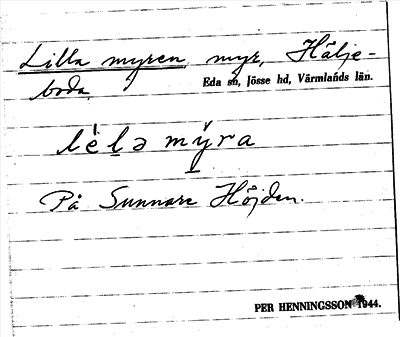 Lilla myren, myr, Hälje-
boda, Eda sn, Jösse hd, Värmlands län.
lèlə mýra
På Sunnare Höjden.
PER HENNINGSSON 1944.